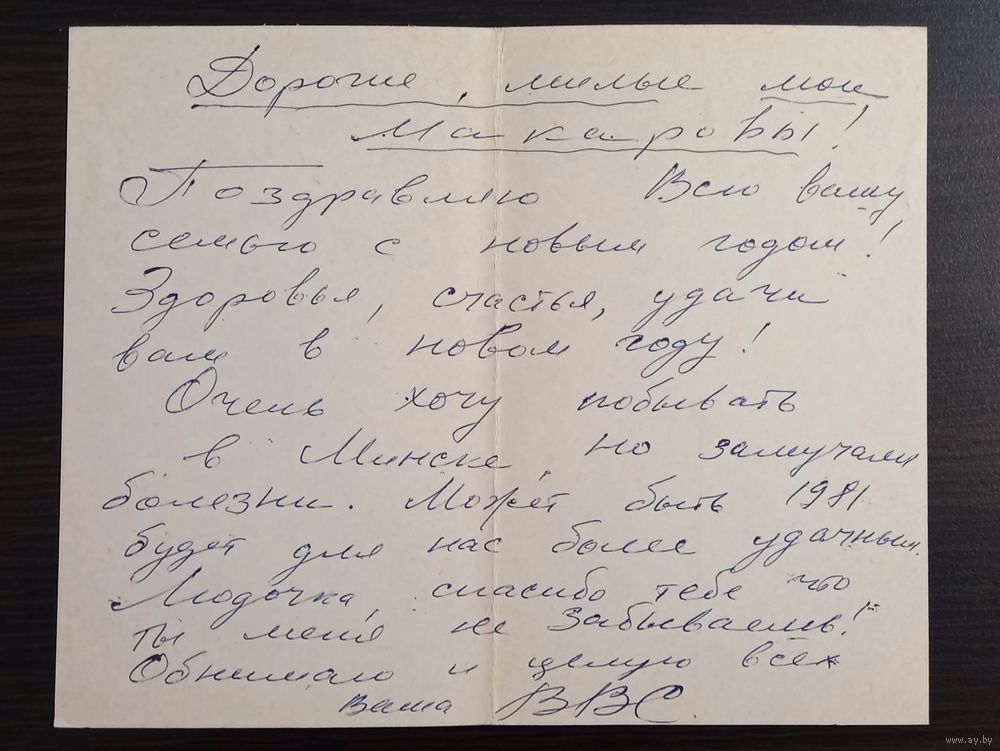 Дорогие, милые мои
Макаровы!
Поздравляю Всю вашу
семью с новым годом!
Здоровья, счастья, удачи
вам в новом году!
Очень хочу побывать
в Минске, но замучали
болезни. Может быть 1981
будет для нас более удачным.
Людочка, спасибо тебе что
ты меня не забываешь!
Обнимаю и целую всех
Ваша ВВС.
www.ay.by